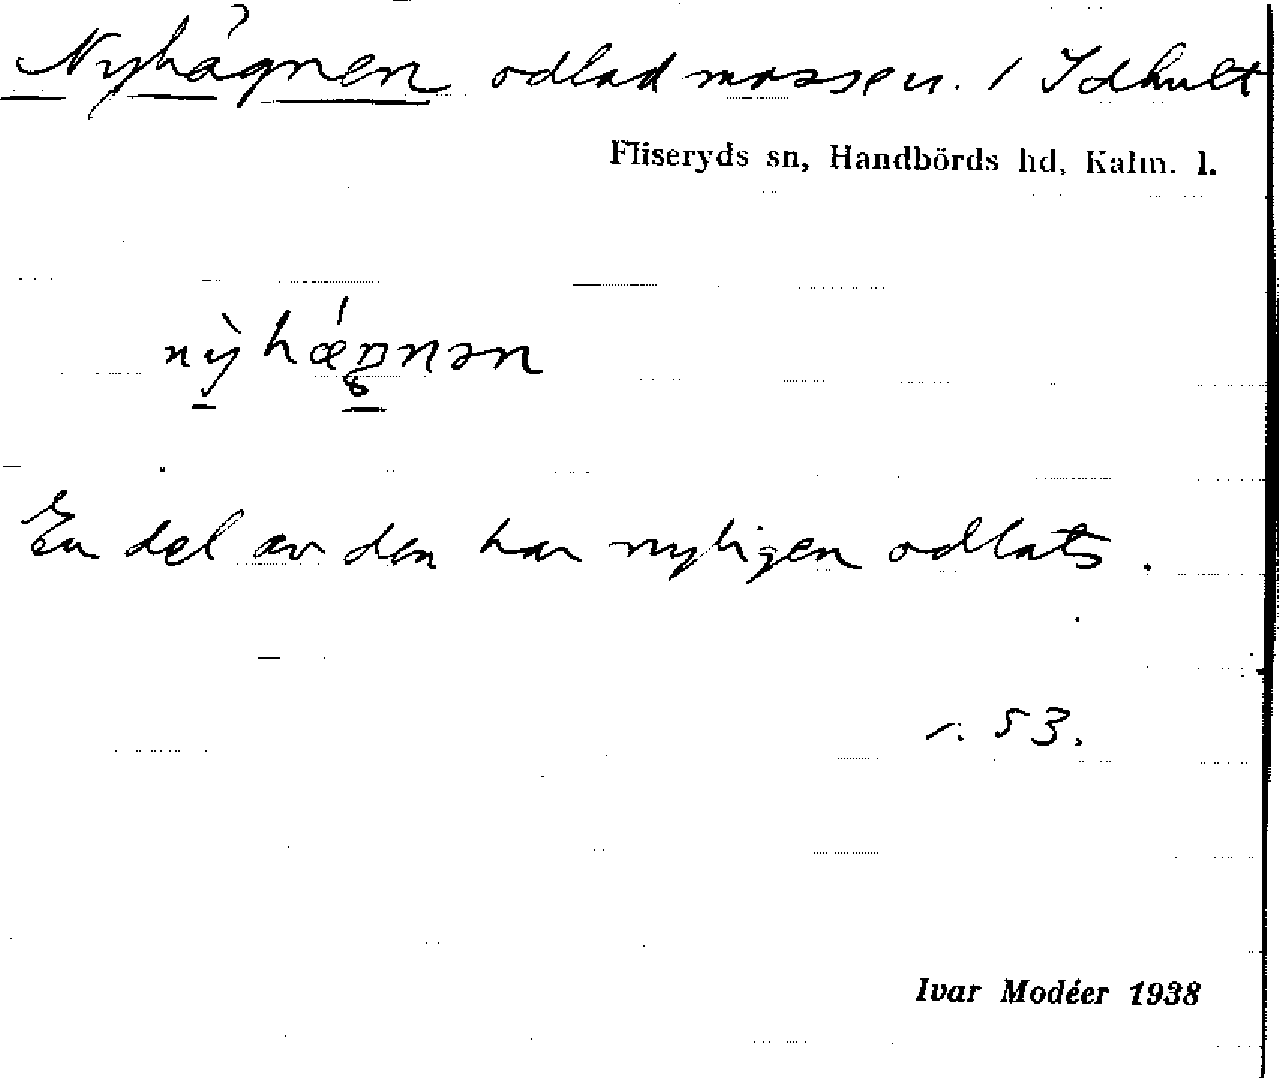 Nyhagnen odlad mosse m. 1 Idhult
Fliseryds sn, Handbörds hd, Kalm. l.
nỳhǽŋnən
En del av den har nyligen odlats.
s. 53.
Ivar Modéer 1938